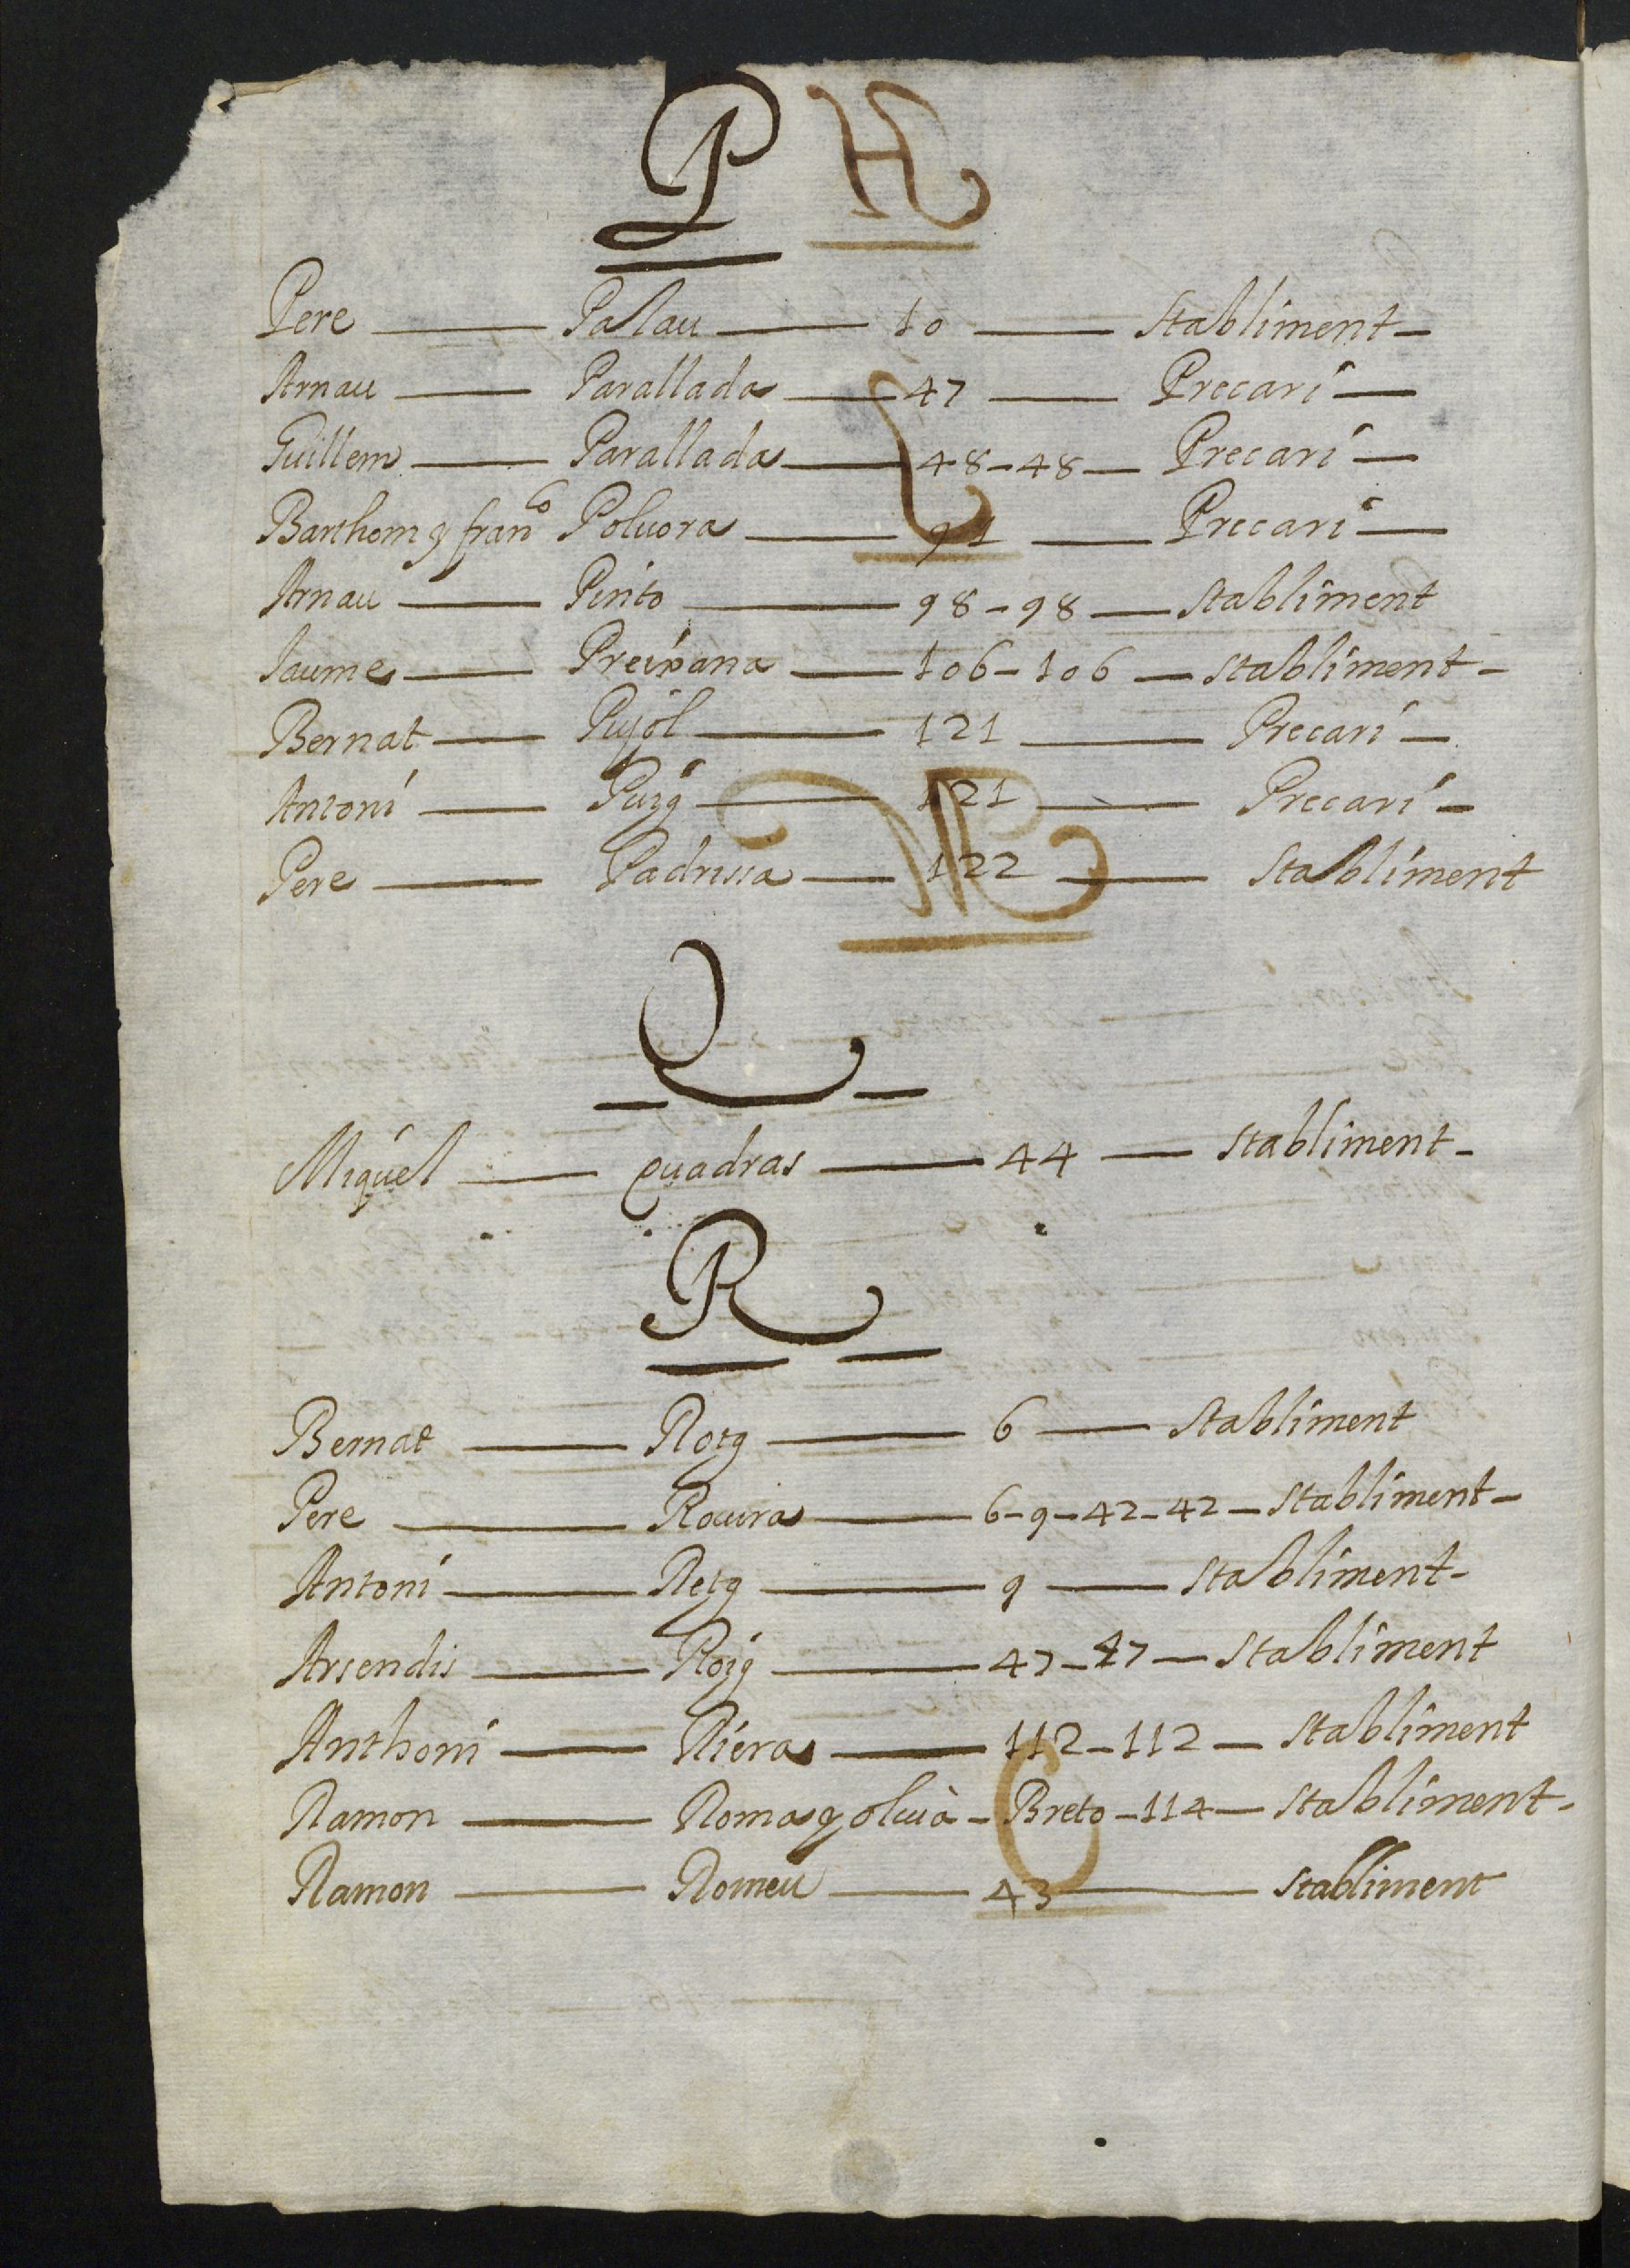 P H
Pere — Palau — 10 — Stabliment —
Arnau — Parallada — 47 — Precari —
Guillem — Parallada — 48 - 48 — Precari —
Barthom y franco Poluora — 91 — Precari —
Arnau — Pinto — 98 - 98 — Stabliment
Jaume — Preixana — 106 - 106 — Stabliment -
Bernat — Pujol — 121 — Precari —
Antoni — Puig — 121 — Precari —
Pere — Padrissa — 122 — Stabliment
L
M
Q
Miquel — quadras — 44 — Stabliment -
R
Bernat — Rotg — 6 — Stabliment
Pere — Rouira — 6 - 9 - 42 - 42 — Stabliment -
Antoni — Retg — 9 — Stabliment -
Arsendis — Roig — 47 - 47 — Stabliment
Anthoni — Riera — 112 - 112 — Stabliment
Ramon — Roma y oluià - Breto - 114 — Stabliment -
Ramon — Romeu — 43 — Stabliment
C